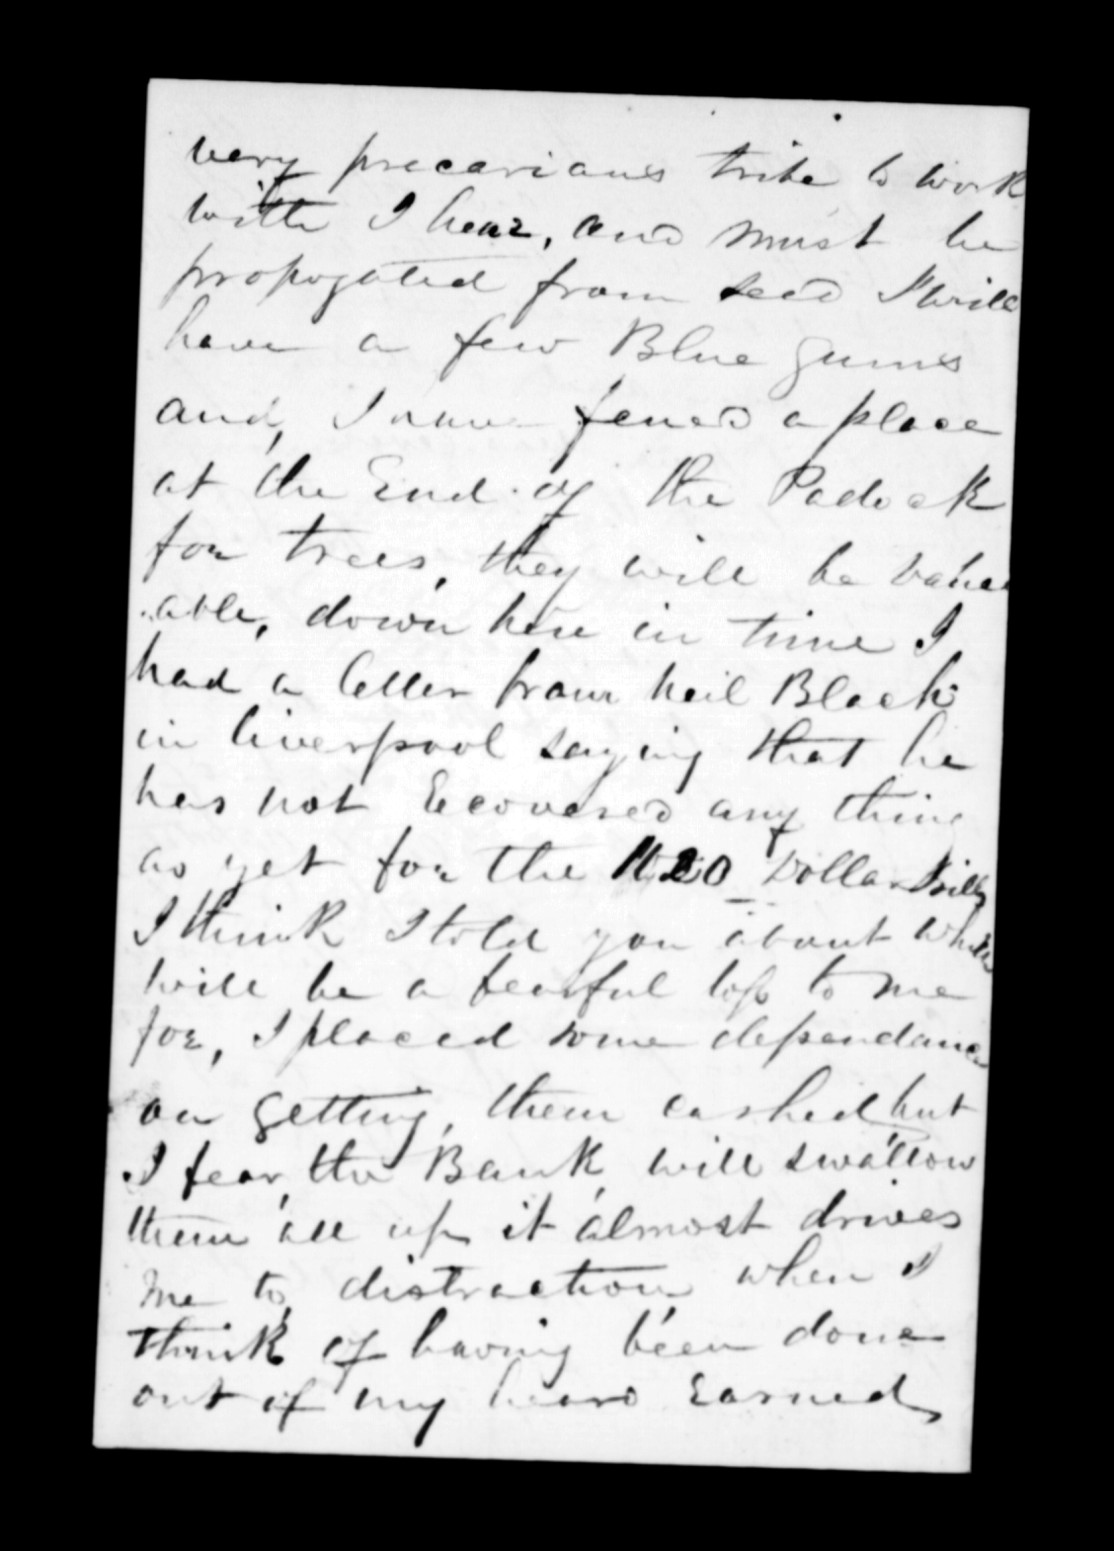 very precarious tribe to work
with I hear, and must be
propogated from seed I will
have a few Blue gums
and, I have fenced a place
at the End of the Padock
for trees, they will be valu
able, down here in time I
had a letter from Neil Black
in Liverpool saying that he
has not Recovered any thing
as yet for the Dollar Bills
I think I told you about which
will be a fearful loss to me
for, I placed some dependance
on getting, them cashed but
I fear, the Bank, will swallow
them all up it almost drives
me to, distraction when I
think of having been done
out of my heard Earned